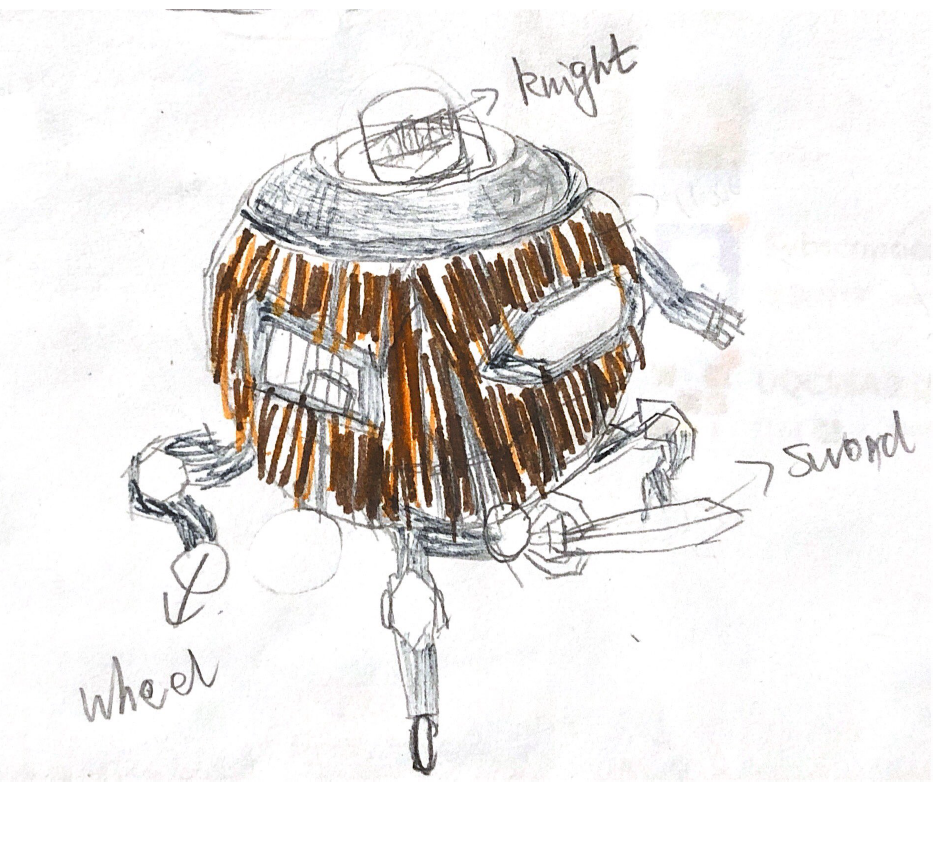 knight
sword
wheel